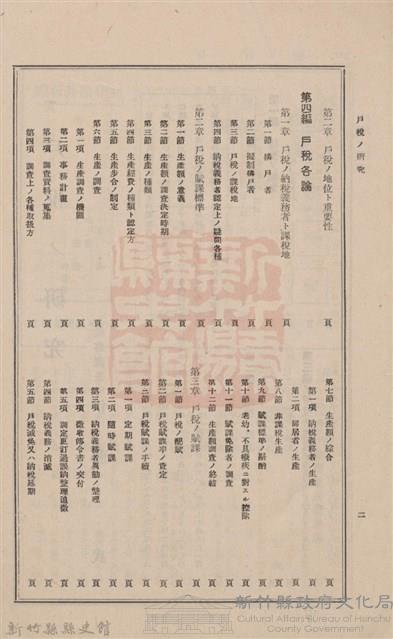 戶稅ノ研究
二
第二章 戶稅ノ地位ト重要性 頁
第四編 戶稅各論
第一章 戶稅ノ納稅義務者ト課稅地 頁
第一節 構戶者 頁
第二節 擬制構戶者 頁
第三節 戶稅ノ課稅地 頁
第四節 納稅義務者認定上ノ疑問各種 頁
第二章 戶稅ノ賦課標準 頁
第一節 生產額ノ意義 頁
第二節 生產額ノ調查決定時期 頁
第三節 生產ノ種類 頁
第四節 生產經費ノ種類ト認定方 頁
第五節 生產步合ノ制定 頁
第六節 生產ノ調查 頁
第一項 生產調查ノ機關 頁
第二項 事務計畫 頁
第三項 調查資料ノ蒐集 頁
第四項 調查上ノ各種取扱方 頁
第七節 生產額ノ綜合 頁
第一項 納稅義務者ノ生產 頁
第二項 同居者ノ生產 頁
第八節 非課稅生產 頁
第九節 賦課標準ノ斟酌 頁
第十節 老幼、不具癈疾ニ對スル控除 頁
第十一節 賦課免除者ノ調查 頁
第十二節 生產額調查ノ終結 頁
第三章 戶稅ノ賦課
第一節 戶稅ノ配賦 頁
第二節 戶稅賦課率ノ查定 頁
第三節 戶稅賦課ノ手續 頁
第一項 定期賦課 頁
第二項 隨時賦課 頁
第三項 納稅義務者異動ノ整理 頁
第四項 徵收傳令書ノ交付 頁
第五項 調定更訂過誤納整理追徵 頁
第四節 納稅義務ノ消滅 頁
第五節 戶稅減免又ハ納稅延期 頁
新竹縣縣史館
新竹縣政府文化局
Cultural Affairs Bureau of Hsinchu County Government